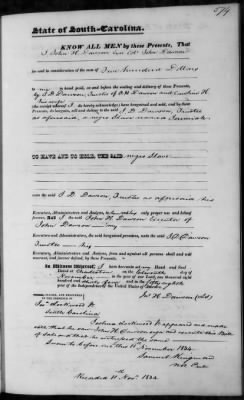 579
State of South-Carolina.
KNOW ALL MEN by these Presents, That
I John H. Dawson
for and in consideration of the sum of Five Hundred Dollars
to me in hand paid, at and before the sealing and delivery of these Presents,
by J. D. Dawson, Trustee of and Caroline H.
his wife
(the receipt whereof I do hereby acknowledge) have bargained and sold, and by these
Presents, do bargain, sell and deliver to the said J. D. Dawson, Trustee
as aforesaid, a negro Slave named Jeremiah
TO HAVE AND TO HOLD, THE SAID negro Slave
unto the said J. D. Dawson, Trustee as aforesaid his
Executors, Administrators and Assigns, to only proper use and behoof
forever. And I the said John H. Dawson
John Dawson my
Executors, Administrators, the said bargained premises, unto the said J. D. Dawson
Trustee his
Executors, Administrators and Assigns, from and against all persons shall and will
warrant, and forever defend, by these Presents.
In Witness Whereof, I have hereunto set my Hand and Seal
Dated at Charleston on the Eleventh day of
November in the year of our Lord one thousand eight
hundred and thirty four and in the fifty ninth
year of the Independence of the United States of America.
SIGNED, SEALED, AND DELIVERED
IN THE PRESENCE OF
Jno. H. Dawson (LS)
Joshua Lockwood Jr.
South Carolina
Joshua Lockwood Jr. appeared and made
oath that he saw John H. Dawson sign and execute this Bill
of Sale and that he witnessed the same
Sworn to before me this 11 November 1834
Samuel
Not. Pub.
Recorded 11th Novr. 1834